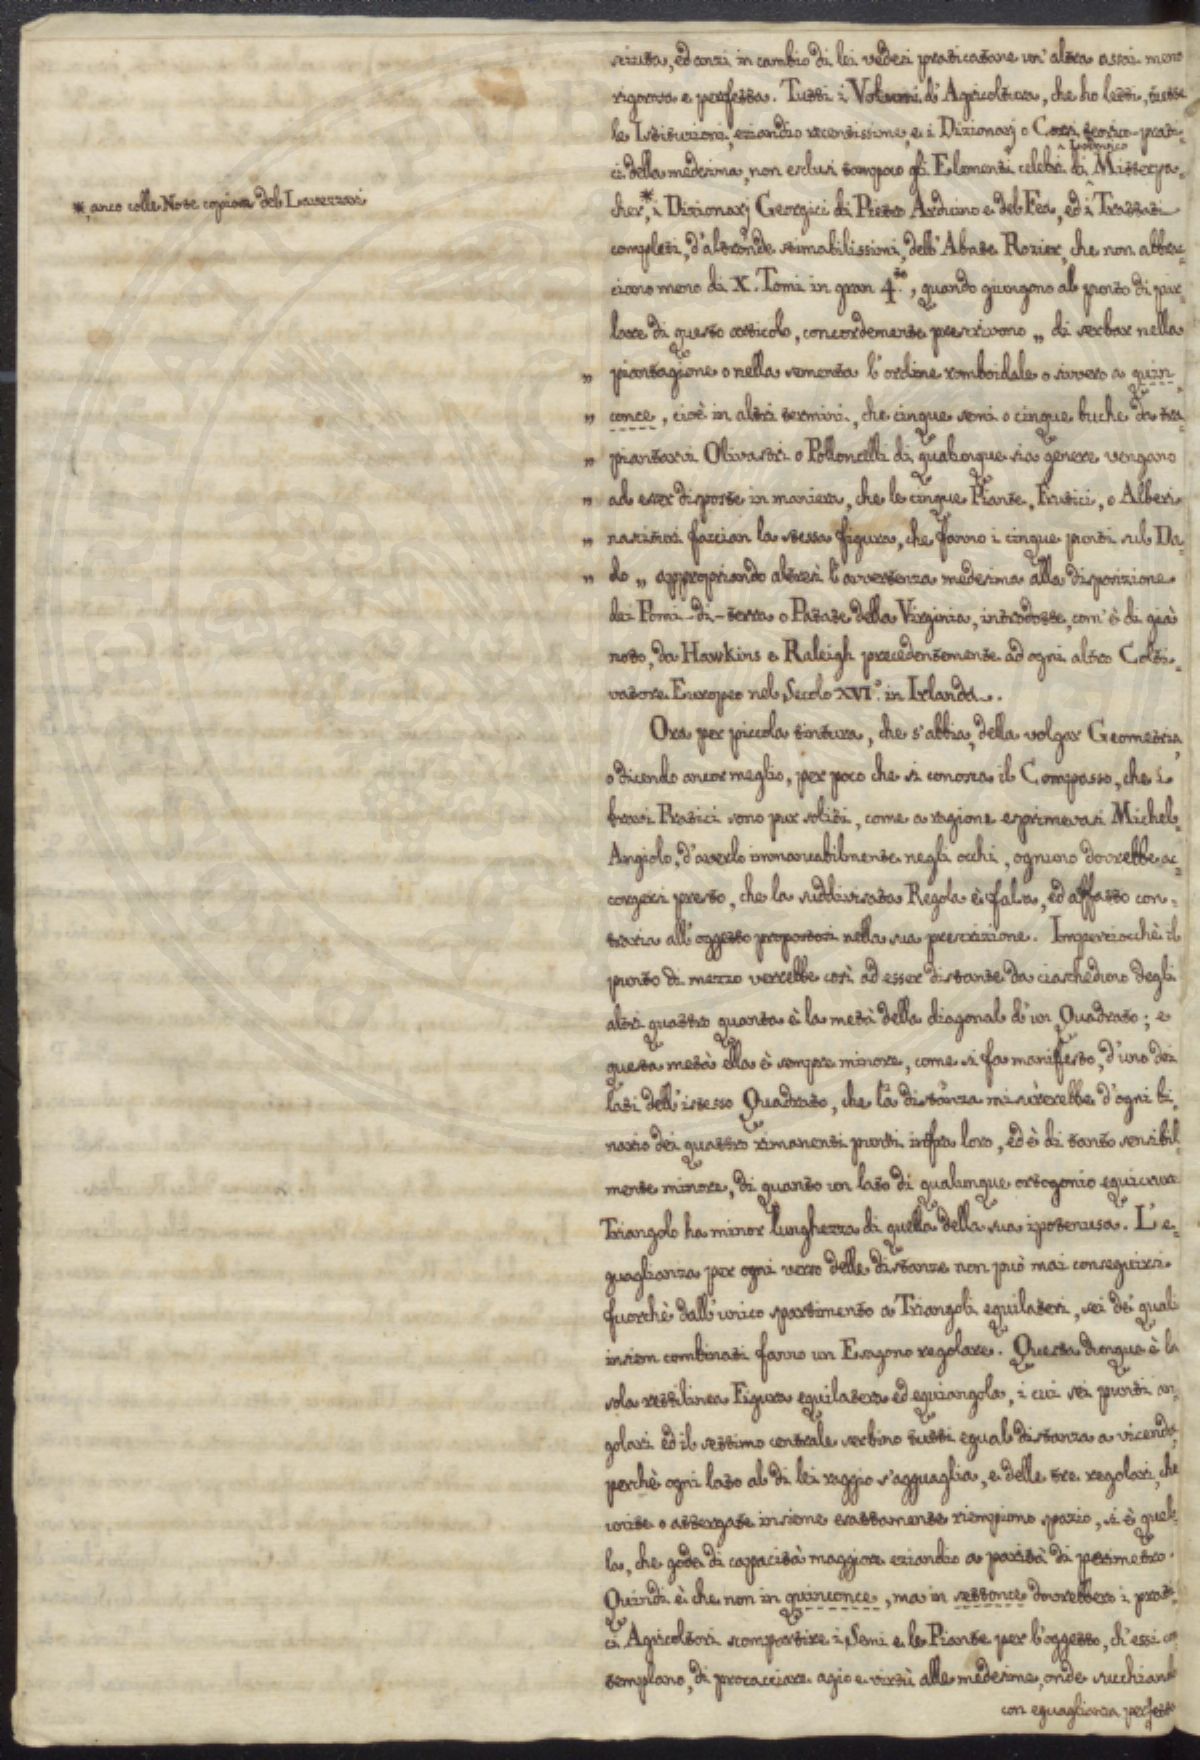 sciuta, ed anzi in cambio di lei vedersi praticatane un' altra assai meno
rigorosa e perfetta. Tutti i Volumi d'Agricoltura, che ho letti, tutte
le Istituzioni, eziandio recentissime, e i Dizionarj o Corsi teorico-prati-
ci della medesima, non esclusi tampoco gli Elementi celebri di Mitterpa-
^ Lodovico
cher,* i Dizionarj Georgici di Pietro Arduino e del Fea, ed i Trattati
*, anco colle Note copiose del Lavezzari
completi, d'altronde stimabilissimi, dell'Abate Rozier, che non abbrac-
ciano meno di X. Tomi in gran 4.to, quando giungono al punto di par-
lare di questo articolo, concordemente prescrivono „ di serbar nella
„ piantagione o nella sementa l'ordine romboidale o sivvero a quin-
„ conce, cioè in altri termini, che cinque semi o cinque buche da tra-
„ piantarvi Olivastri o Polloncelli di qualunque sia genere vengano
„ ad esser disposte in maniera, che le cinque Piante, Frutici, o Alberi
„ nascituri faccian la stessa figura, che fanno i cinque punti sul Da-
„ do „ appropriando altresì l'avvertenza medesima alla disposizione
dei Pomi-di-terra o Patate della Virginia, introdotte, com'è di già
noto, da Hawkins e Raleigh precedentemente ad ogni altro Colti-
vatore Europeo nel Secolo XVI.° in Irlanda.
Ora per piccola tintura, che s'abbia, della volgar Geometria,
o dicendo ancor meglio, per poco che si conosca il Compasso, che i
bravi Pratici sono pur soliti, come a ragione esprimevasi Michel-
Angiolo, d'averlo immancabilmente negli occhi, ognuno dovrebbe ac-
corgersi presto, che la suddivisata Regola è falsa, ed affatto con-
traria all'oggetto propostosi nella sua prescrizione. Imperciocchè il
punto di mezzo verrebbe così ad esser distante da ciascheduno degli
altri quattro quanta è la metà della diagonal d'un Quadrato; e
questa metà ella è sempre minore, come si fa manifesto, d'uno dei
lati dell'istesso Quadrato, che la distanza misurerebbe d'ogni bi-
nario dei quattro rimanenti punti infra loro, ed è di tanto sensibil-
mente minore, di quanto un lato di qualunque ortogonio equicrure
Triangolo ha minor lunghezza di quella della sua ipotenusa. L'e-
guaglianza per ogni verso delle distanze non può mai conseguirsi
fuorchè dall'unico spartimento a Triangoli equilateri, sei de' quali
insiem combinati fanno un Esagono regolare. Questa dunque è la
sola rettilinea Figura equilatera ed equiangola, i cui sei punti an-
golari ed il settimo centrale serbino tutti egual distanza a vicenda,
perchè ogni lato al di lei raggio s'agguaglia, e delle tre regolari, che
unite o attergate insieme esattamente riempiono spazio, si è quel-
la, che gode di capacità maggiore eziandio a parità di perimetro.
Quindi è che non in quinconce, ma in settonce dovrebbero i prati-
ci Agricoltori scompartire i Semi e le Piante per l'oggetto, ch'essi con-
templano, di procacciare agio e virtù alle medesime, onde succhiando
con eguaglianza perfetta